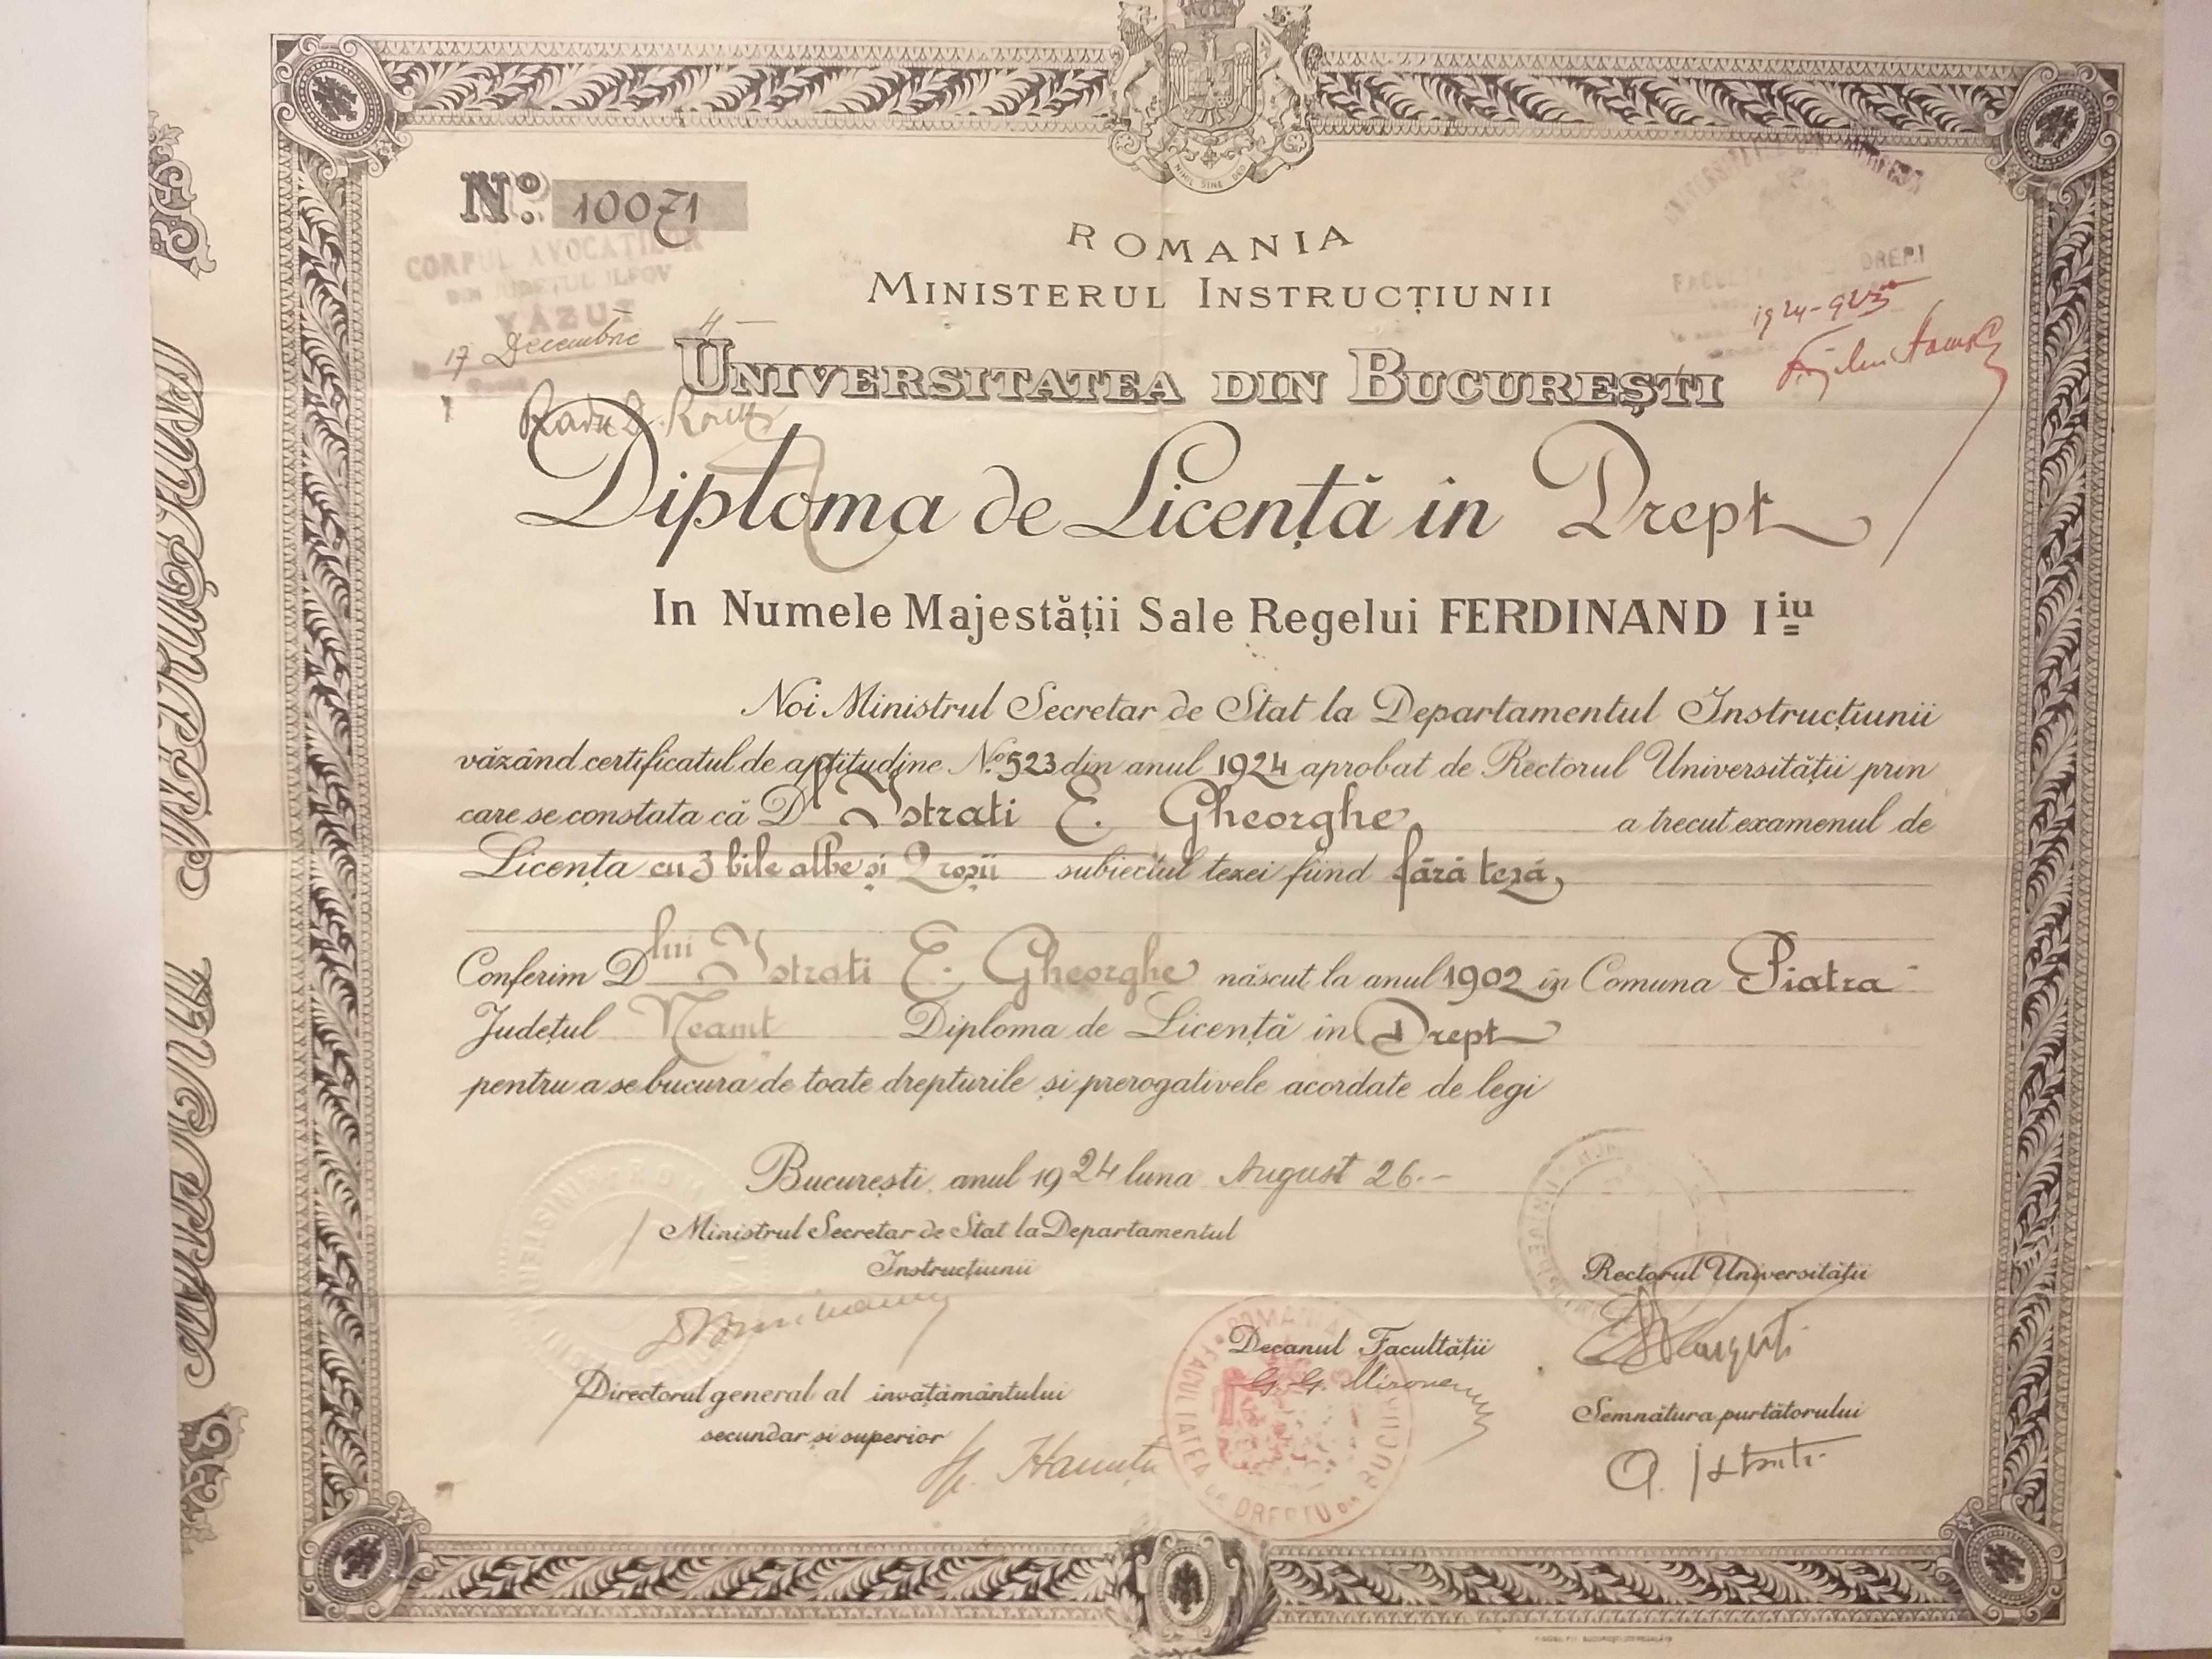 NIHIL SINE DEO
No. 10071
ROMANIA
MINISTERUL INSTRUCȚIUNII
UNIVERSITATEA DIN BUCUREȘTI
CORPUL AVOCAȚILOR
DIN JUDEȚUL ILFOV
VĂZUT
17 Decembrie 4
Radu D. 
UNIVERSITATEA DIN BUCUREȘTI
FACULTATEA DE DREPT
1924-925
Diploma de Licență in Drept
In Numele Majestății Sale Regelui FERDINAND I iu
Noi Ministrul Secretar de Stat la Departamentul Instrucțiunii
văzând certificatul de aptitudine No. 523 din anul 1924 aprobat de Rectorul Universității prin
care se constata că Dl Istrati E. Gheorghe a trecut examenul de
Licența cu 3 bile albe și 2 roșii subiectul tezei fiind fără teză,
Conferim Dlui Istrati E. Gheorghe născut la anul 1902 in Comuna Piatra
Județul Neamt Diploma de Licență in Drept
pentru a se bucura de toate drepturile și prerogativele acordate de legi
București, anul 1924 luna August 26.-
Ministrul Secretar de Stat la Departamentul
Instrucțiunii
Rectorul Universității
Decanul Facultății
G. G. Mironescu
Directorul general al invățământului
secundar și superior
Semnătura purtătorului
G. Istrati
ROMANIA
FACULTATEA DE DREPTU DIN BUCURESCI